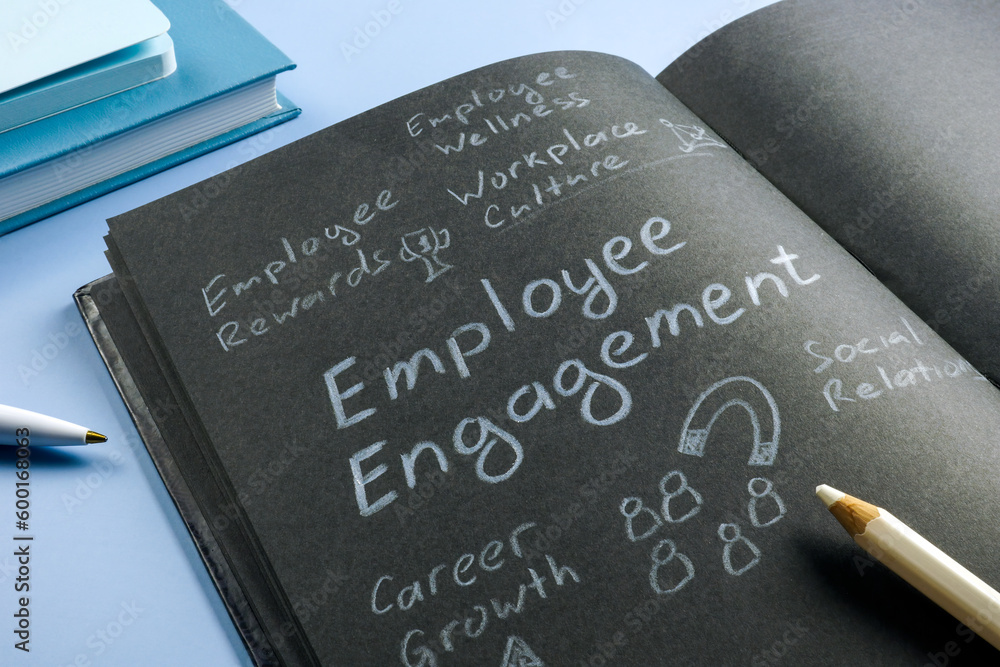 Employee
Wellness
Workplace
Culture
Employee
Rewards
Employee
Engagement
Social
Relations
Career
Growth
Adobe Stock | #600168063